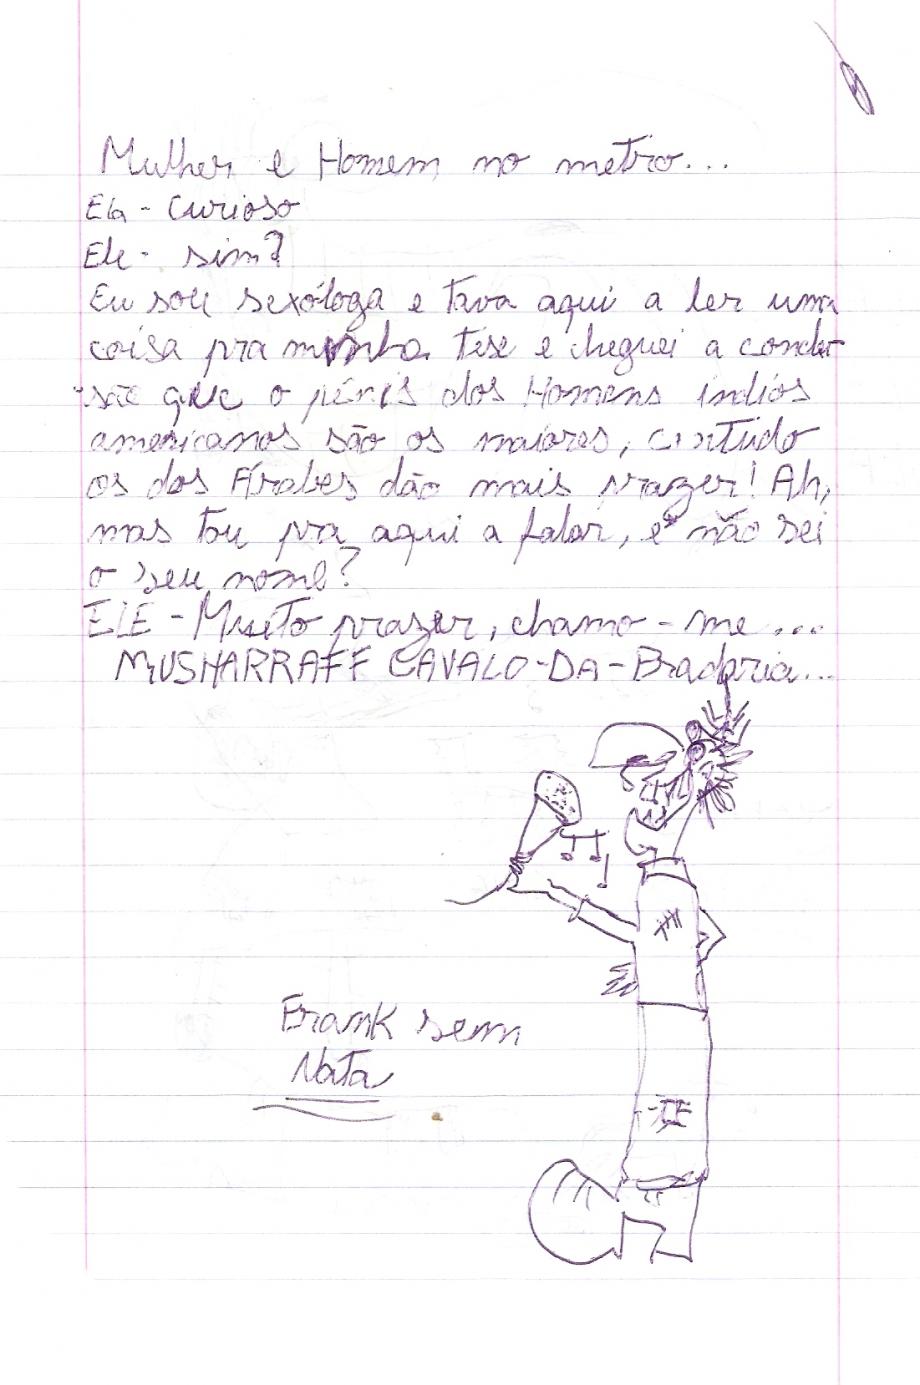 Mulher e Homem no metro...
Ela - Curioso
Ele - sim?
Eu sou sexóloga e tava aqui a ler uma
coisa pra minha tese e cheguei a conclu-
-são que o pénis dos Homens indios
americanos são os maiores, contudo
os dos Árabes dão mais prazer! Ah,
mas tou pra aqui a falar, e não sei
o seu nome?
ELE - Muito prazer, chamo-me...
MUSHARRAFF CAVALO-DA-Bradaria...
Frank sem
Nata